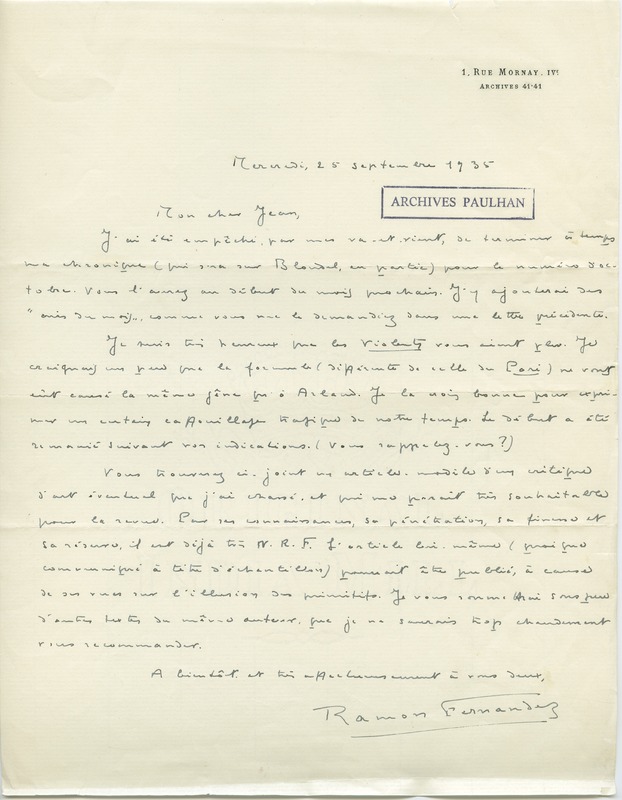 1, RUE MORNAY. IVᵉ
ARCHIVES 41-41
Mercredi, 25 septembre 1935
ARCHIVES PAULHAN
Mon cher Jean,
J'ai été empêché, par mes va-et-vient, de terminer à temps
ma chronique (qui sera sur Blondel, en partie) pour le numéro d'oc-
tobre. Vous l'aurez au début du mois prochain. J'y ajouterai des
"airs du mois", comme vous me le demandiez dans une lettre précédente.
Je suis très heureux que les Violents vous aient plu. Je
craignais un peu que la formule (différente de celle du Pari) ne vous
eût causé la même gêne qu'à Arland. Je la crois bonne pour expri-
mer un certain cafouillage tragique de notre temps. Le début a été
remanié suivant vos indications. (Vous rappelez-vous?)
Vous trouverez ci-joint un article-modèle d'un critique
d'art éventuel que j'ai chassé, et qui me paraît très souhaitable
pour la revue. Par ses connaissances, sa pénétration, sa finesse et
sa réserve, il est déjà très N.R.F. L'article lui-même (quoique
communiqué à titre d'échantillon) pourrait être publié, à cause
de ses vues sur l'illusion des primitifs. Je vous soumettrai sous peu
d'autres textes du même auteur, que je ne saurais trop chaudement
vous recommander.
A bientôt et très affectueusement à vous deux,
Ramon Fernandez